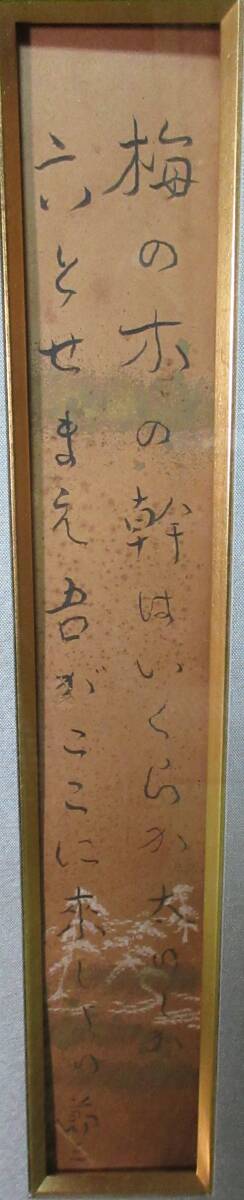 梅の木の幹はいくらか太りしか
六とせまえ吾がここに来しよりの 節三